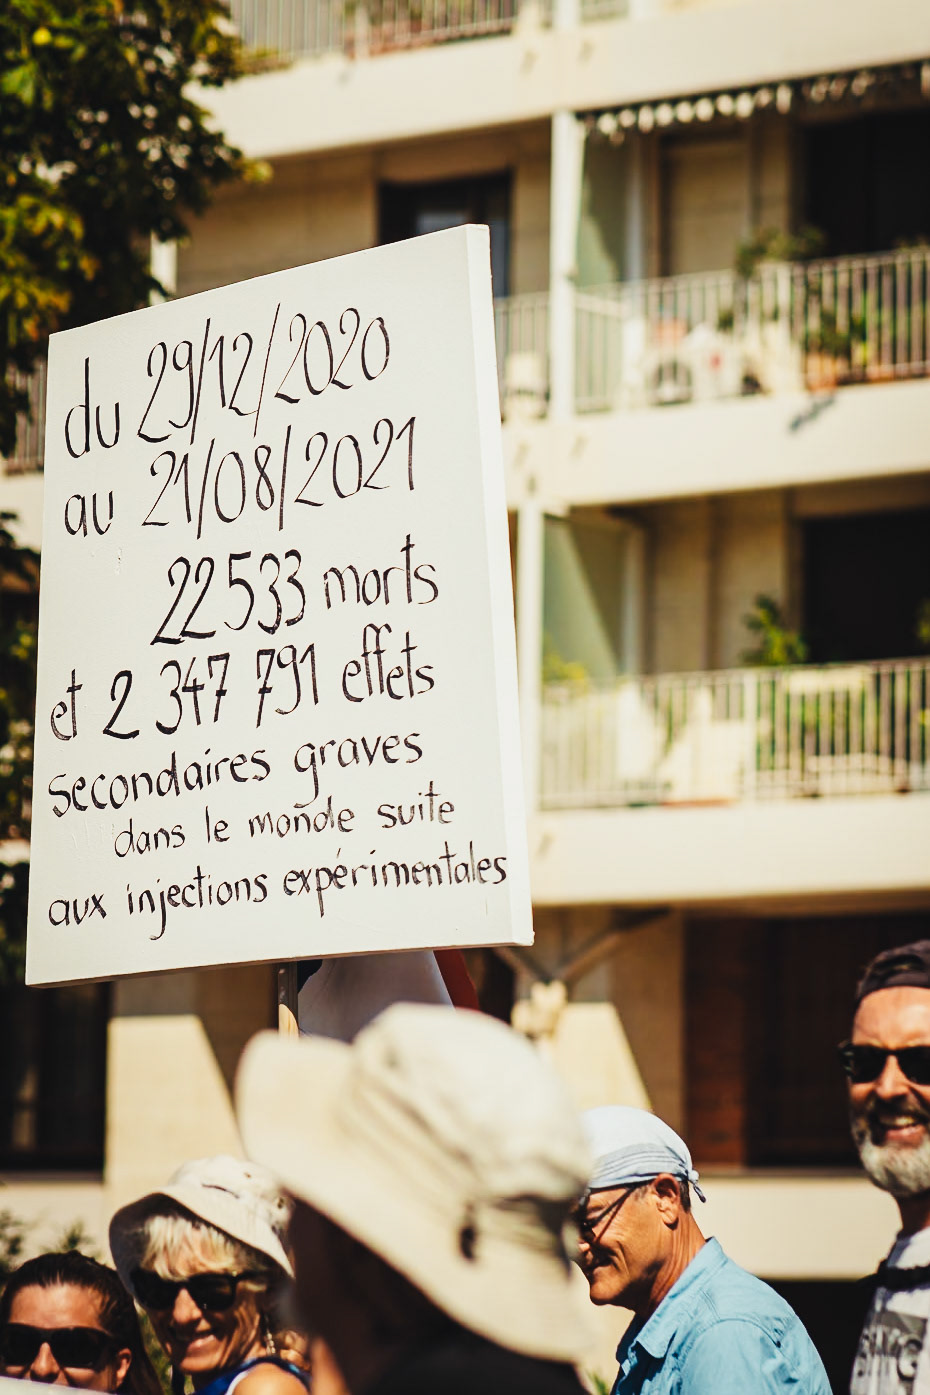 du 29/12/2020
au 21/08/2021
22533 morts
et 2 347 791 effets
secondaires graves
dans le monde suite
aux injections expérimentales